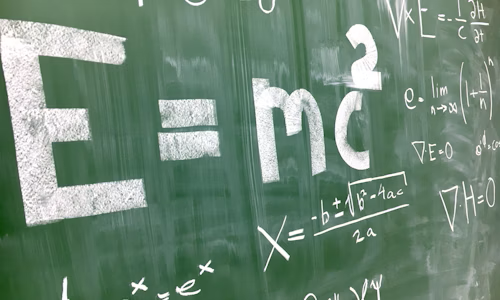 E = mc²
∇×E = -1/c ∂H/∂t
e = lim n→∞ (1+1/n)ⁿ
∇·E=0
∇H=0
X = -b±√b²-4ac / 2a
= eˣ